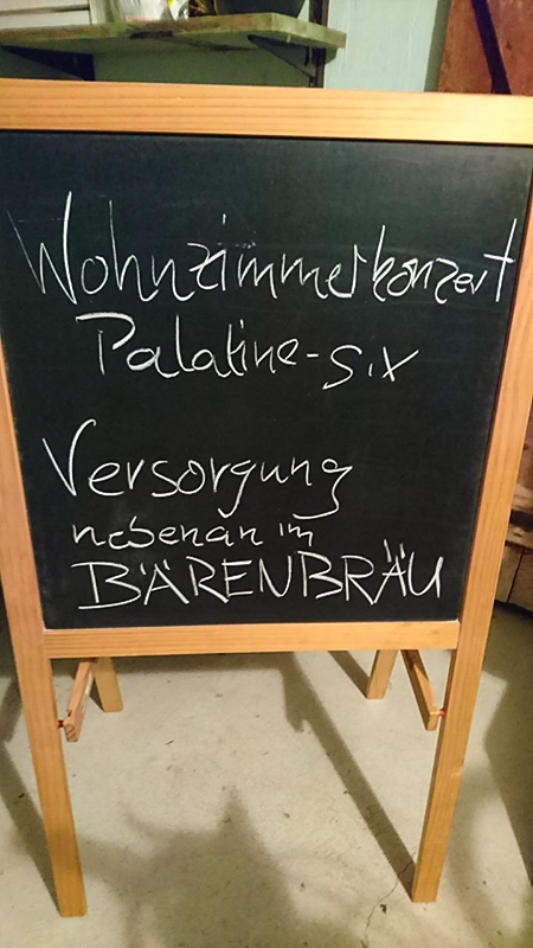 Wohnzimmerkonzert
Palatine-six
Versorgung
nebenan im
BÄRENBRÄU